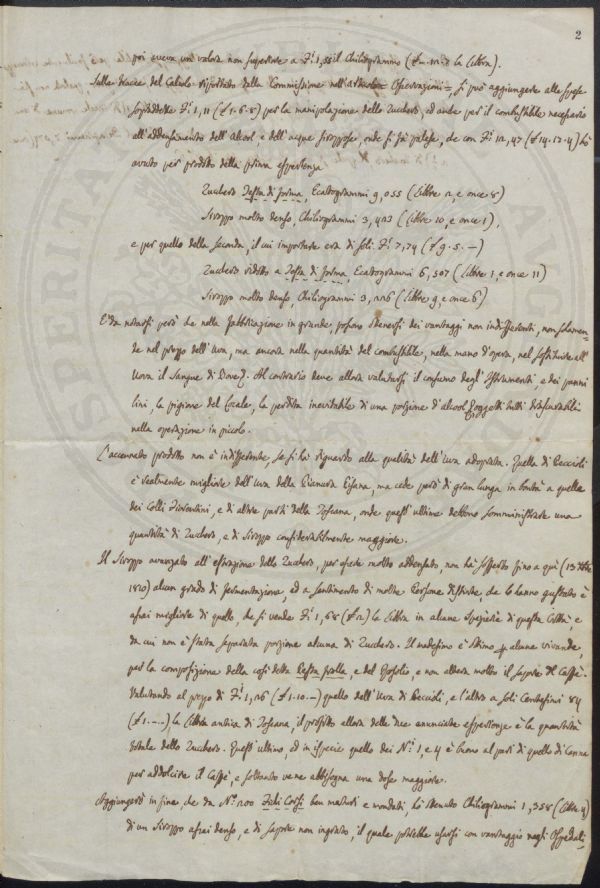 2
poi aveva un valore non superiore a F.i 1,55 il Chiliogrammo (£ — 12.2 la Libbra).
Sulle tracce del Calcolo riportato dalla Commissione nell'articolo = Osservazioni = si può aggiungere alle spese
soprad.ette F.i 1,11 (£ 1.6.8) per la manipolazione dello Zucchero, ed anche per il combustibile necessario
all'addensamento dell'Alcool, e dell'acque sciroppose, onde si fà palese, che con F.i 12,47 (£ 14.17.4) si è
avuto per prodotto della prima esperienza
Zucchero Testa di forma, Ecatogrammi 9,055 (Libbre 2, e once 8)
Siroppo molto denso, Chiliogrammi 3,423 (Libbre 10, e once 1),
e per quello della seconda, il cui importare era di soli F.i 7,74 (£ 9.5.—)
Zucchero ridotto a Testa di forma, Ecatogrammi 6,507 (Libbre 1, e once 11)
Siroppo molto denso, Chiliogrammi 3,226 (Libbre 9, e once 6)
E' da notarsi però che nella fabbricazione in grande, possono ottenersi dei vantaggi non indifferenti, non solamen-
te nel prezzo dell'Uva, ma ancora nella quantità del combustibile, nella mano d'opera, nel sostituire all'
Uova il Sangue di Bove. Al contrario deve allora valutarsi il consumo degl'Istrumenti, e dei panni
lini, la pigione del Locale, la perdita inevitabile di una porzione d'alcool, oggetti tutti trascurabili
nella operazione in piccolo.
L'accennato prodotto non è indifferente, se si ha riguardo alla qualità dell'Uva adoprata. Quella di Peccioli
è realmente migliore dell'Uva della Pianura Pisana, ma cede però di gran lunga in bontà a quella
dei Colli Fiorentini, e di altre parti della Toscana, onde quest'ultime debbono somministrare una
quantità di Zucchero, e di Siroppo considerabilmente maggiore.
Il Siroppo avanzato all'estrazione dello Zucchero, per essere molto addensato, non ha sofferto fino a qui (13 Xbre
1810) alcun grado di fermentazione, ed a sentimento di molte Persone distinte che lo hanno gustato è
assai migliore di quello, che si vende F.i 1,68 (£ 2) la Libbra in alcune Spezierie di questa Città, e
da cui non è stata separata porzione alcuna di Zucchero. Il medesimo è ottimo p alcune vivande,
per la composizione della così detta Pasta frolla, e del Rosolio, e non altera molto il sapore del Caffè.
Valutando al prezzo di F.i 1,26 (£ 1.10.—) quello dell'Uva di Peccioli, e l'altro a soli Centesimi 84
(£ 1.—.—) la Libbra antica di Toscana, il profitto allora delle due enunciate esperienze è la quantità
totale dello Zucchero. Quest'ultimo, ed in specie quello dei N.i 1, e 4 è buono al pari di quello di Canna
per addolcire il Caffè, e soltanto ve ne abbisogna una dose maggiore.
Aggiungerò in fine, che da N.° 200 Fichi Corsi ben maturi e mondati, ho ottenuto Chiliogrammi 1,358 (Libbre 4)
di un Siroppo assai denso, e di sapore non ingrato, il quale potrebbe usarsi con vantaggio negli Ospedali,